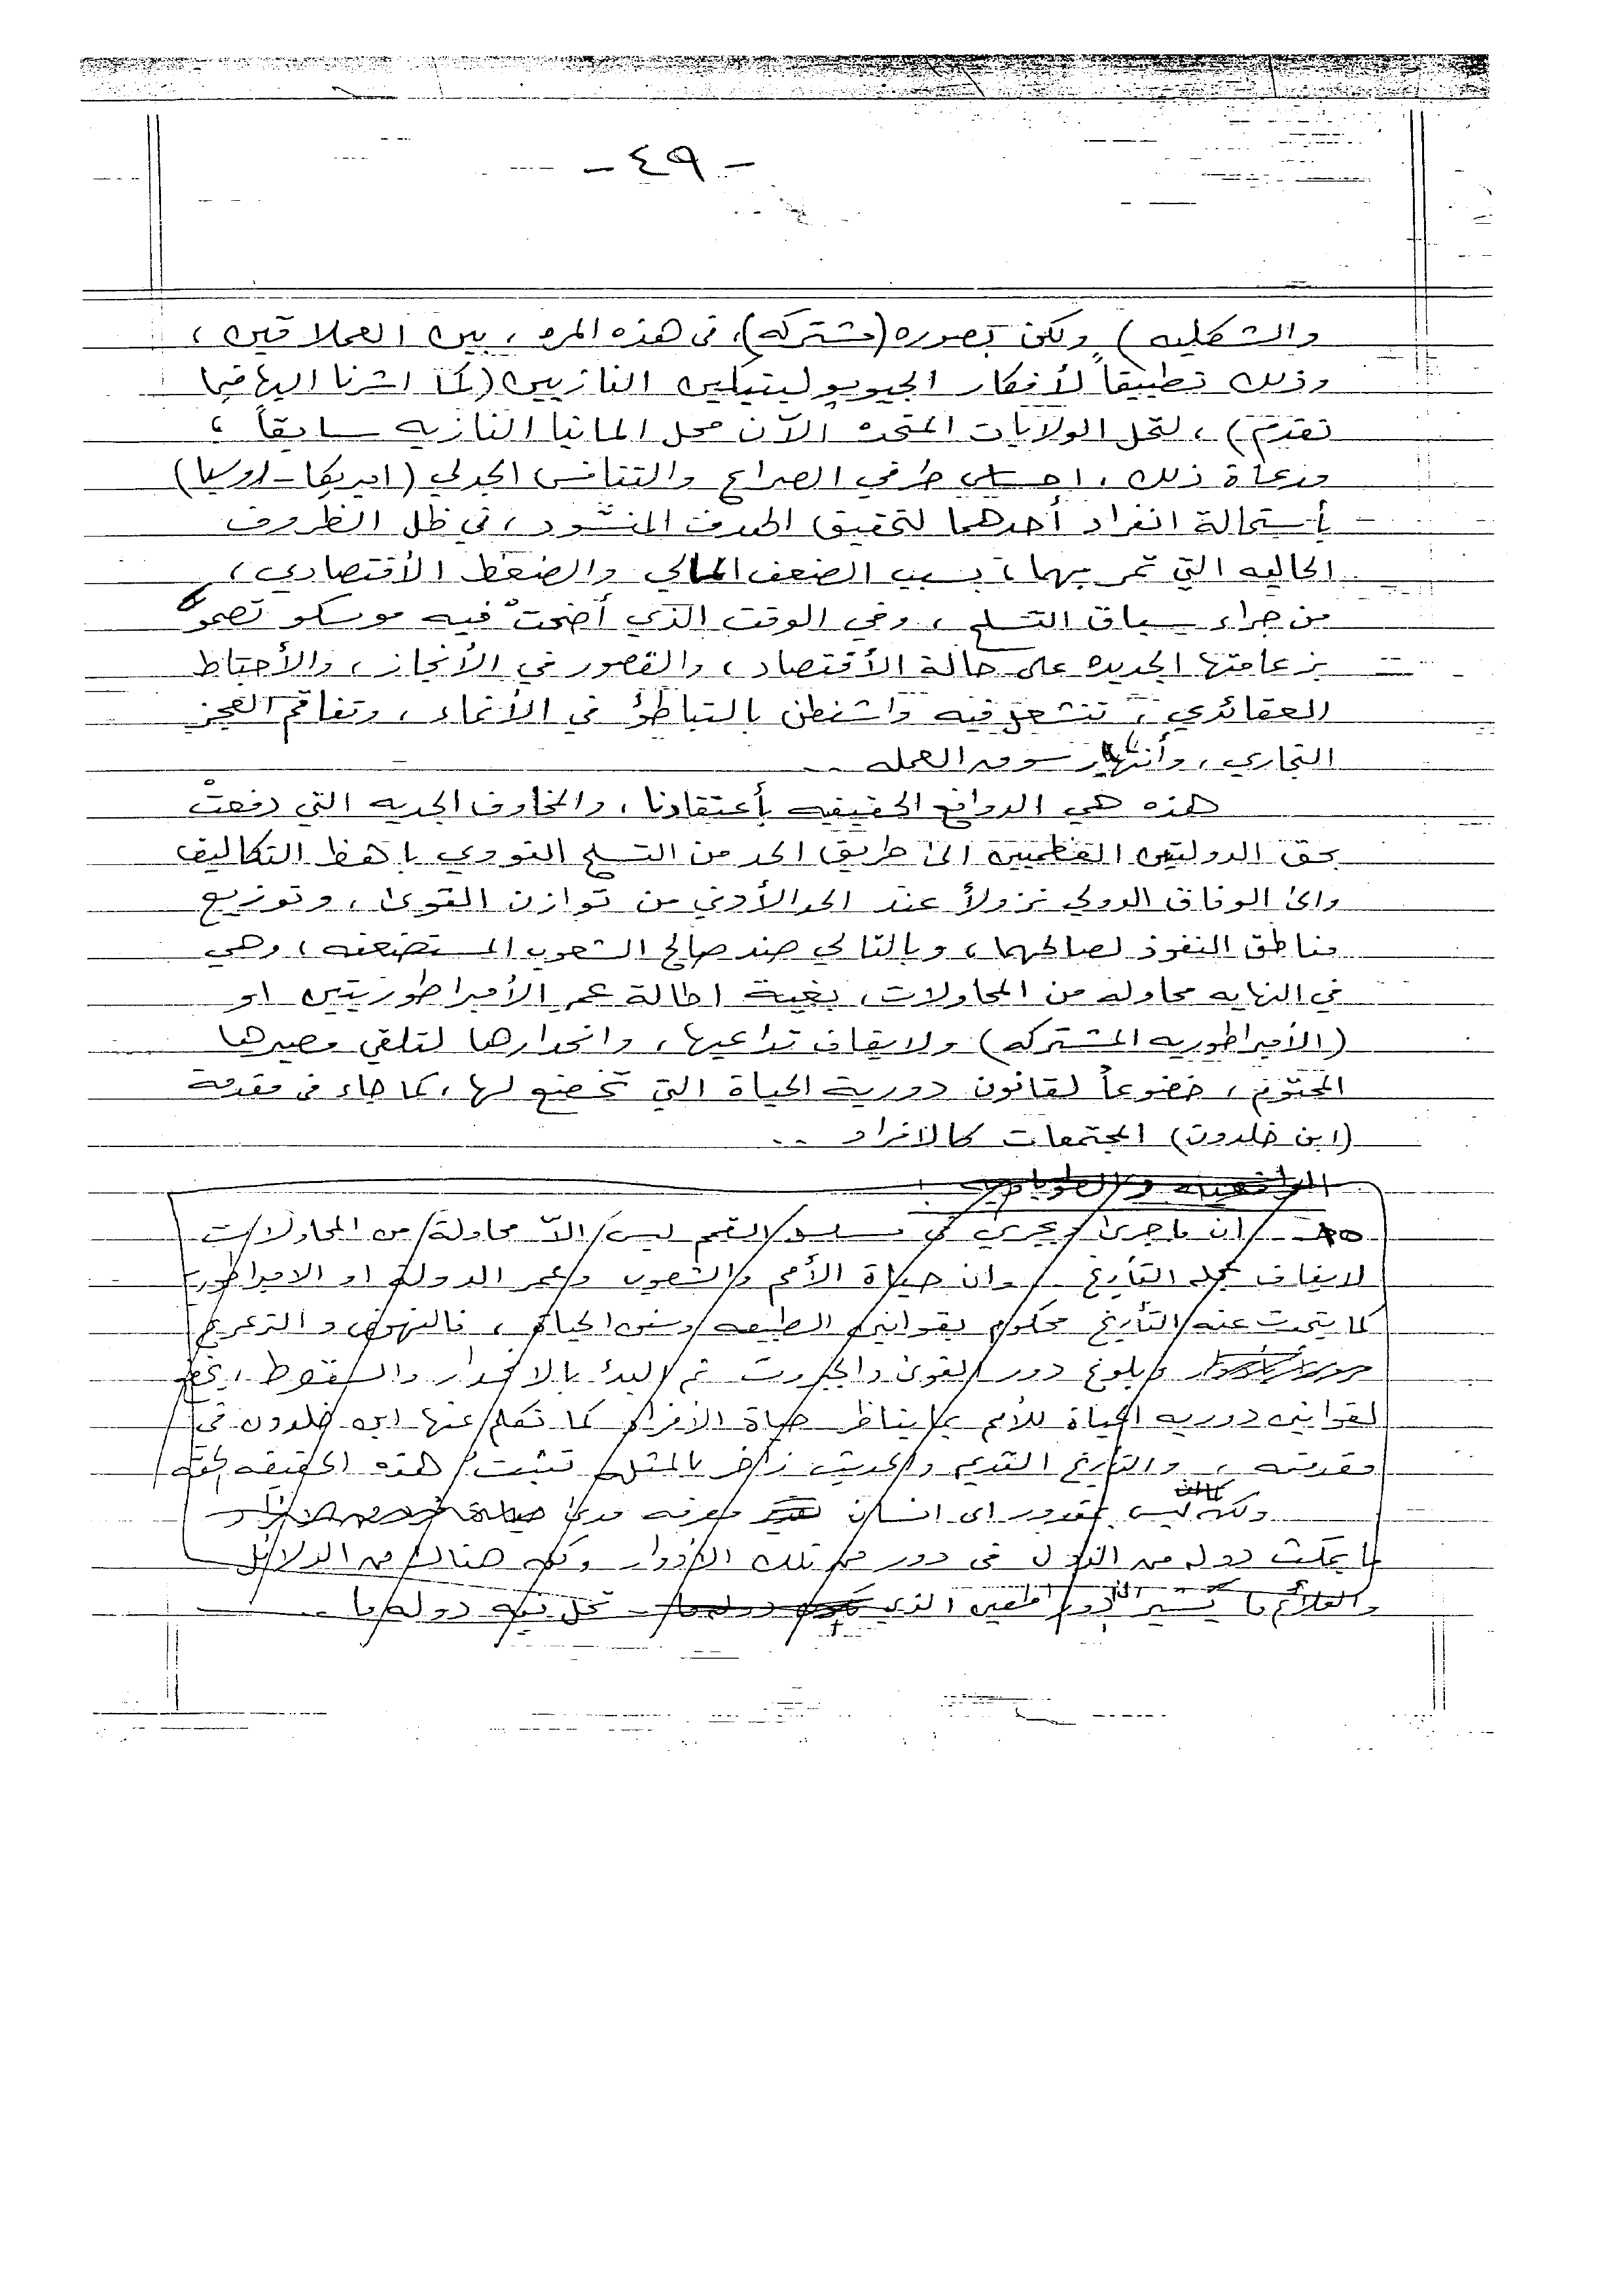 - ٤٩ -
والشكليه) ولكن بصوره (مشتركه)، في هذه المره ، بين العملاقين ،
وذلك تطبيقاً لأفكار الجيوبوليتيكين النازيين (كما اشرنا اليها فيما
تقدم) ، لتحل الولايات المتحده الآن محل المانيا النازيه سابقاً ؛
ومدعاة ذلك ، احساس طرفي الصراع والتنافس الجدلي (امريكا - روسيا)
بأستحالة انفراد أحدهما لتحقيق الهدف المنشود ، في ظل الظروف
الحاليه التي تمر بهما ، بسبب الضعف المالي والضغط الأقتصادي ،
من جراء سباق التسلح ، وفي الوقت الذي أضحت فيه موسكو تصحو
بزعامتها الجديده على حالة الأقتصاد ، والقصور في الأنجاز ، والأحباط
العقائدي ، تنشغل فيه واشنطن بالتباطؤ في الأنماء ، وتفاقم العجز
التجاري ، وأنهيار سوق العمله ..
هذه هي الدوافع الحقيقيه بأعتقادنا ، والمخاوف الجديه التي دفعتْ
بحق الدولتين العظميين الى طريق الحد من التسلح النووي باهظ التكاليف
والى الوفاق الدولي نزولاً عند الحد الأدنى من توازن القوى ، وتوزيع
مناطق النفوذ لصالحهما ، وبالتالي ضد صالح الشعوب المستضعفه ، وهي
في النهايه محاوله من المحاولات ، بغية اطالة عمر الأمبراطوريتين او
(الأمبراطوريه المشتركه) ولايقاف تداعيها ، وانحدارها لتلقي مصيرها
المحتوم ، خضوعاً لقانون دورية الحياة التي تخضع لها ، كما جاء في مقدمة
(ابن خلدون) المجتمعات كالافراد ..
الواقعيه والطوباويه :
ان ماجرى ويجري في مسلسل القمم ليس الاّ محاولة من المحاولات
لايقاف عجلة التأريخ . وان حياة الأمم والشعوب وعمر الدولة او الامبراطوريه
كما يتحدث عنه التأريخ محكوم بقوانين الطبيعه وسنن الحياة ، فالنهوض والترعرع
وبلوغ دور القوى والجبروت ثم البدأ بالانحدار والسقوط ، يخضع
لقوانين دوريه الحياة للأمم بما يناظر حياة الافراد كما تكلم عنها ابن خلدون في
مقدمته ، والتأريخ القديم والحديث زاخر بالمثل تثبت هذه الحقيقه
ولكن ليس بمقدور اى انسان معرفه مدى
ما يمكث دوله من الدول في دور من تلك الأدوار ولكن هناك من الدلائل
والعلائم ما يشير الى الدور المعين الذي تحل فيه دوله ما ..